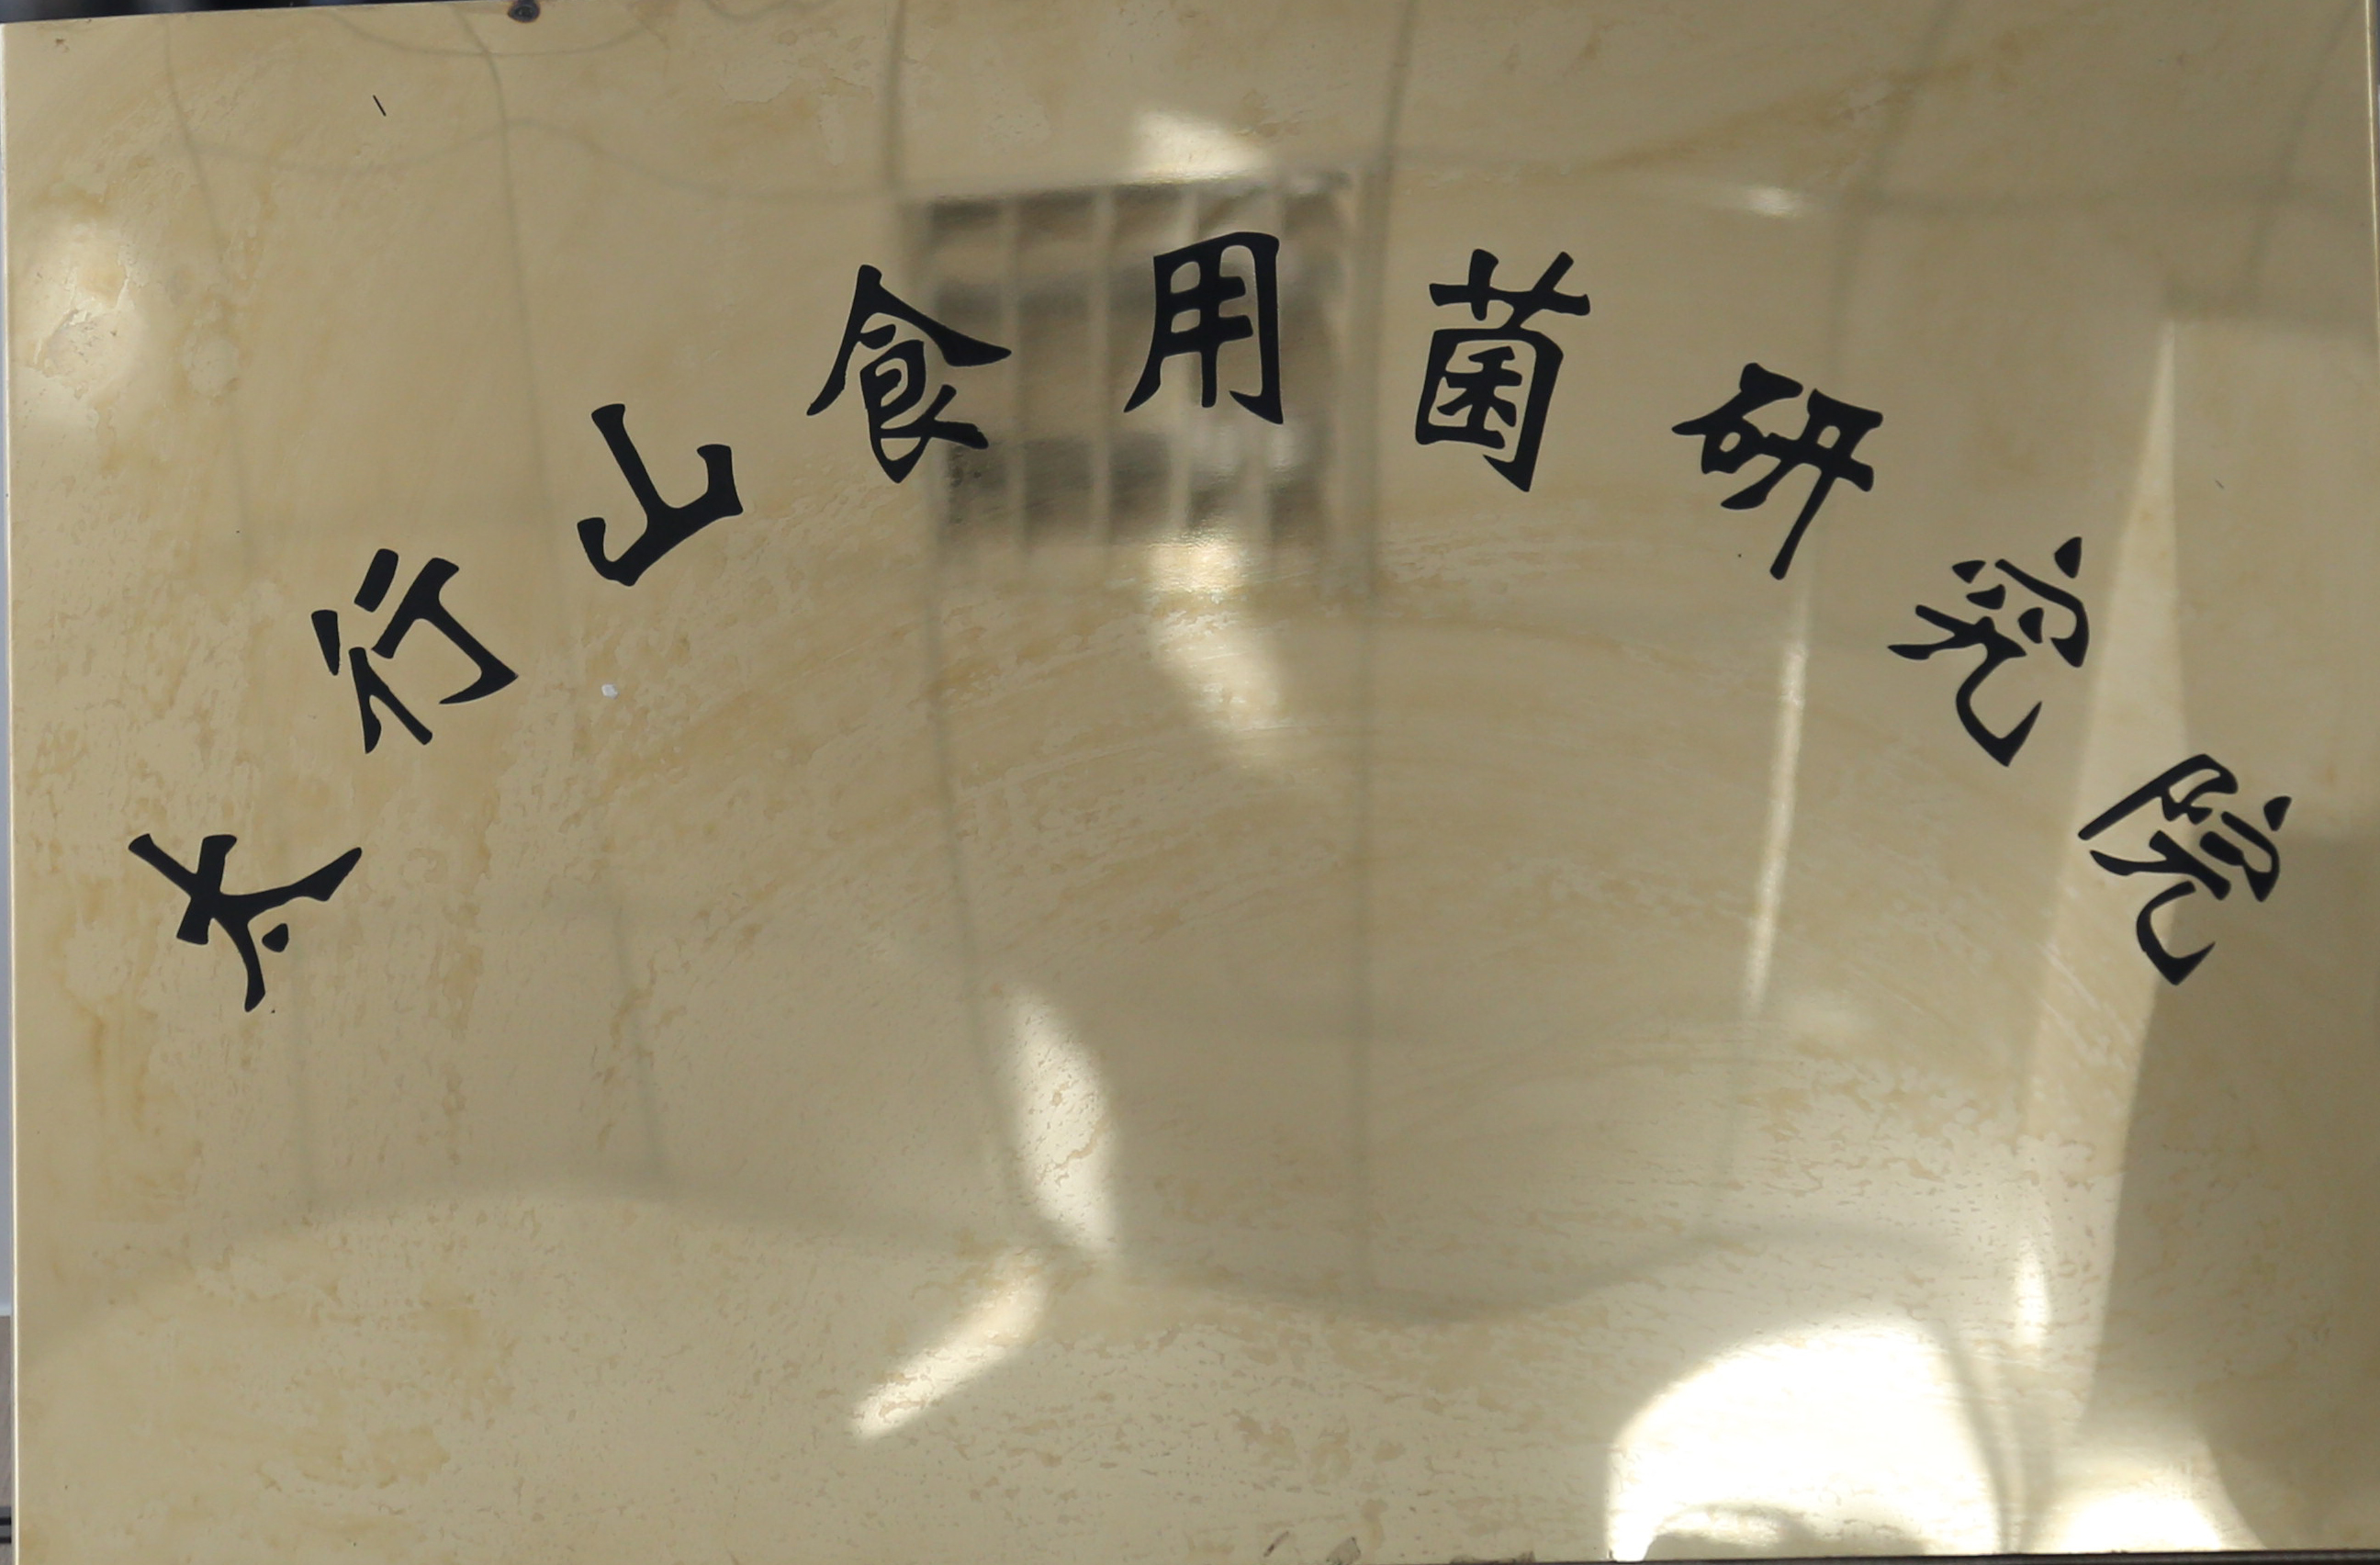 太行山食用菌研究院